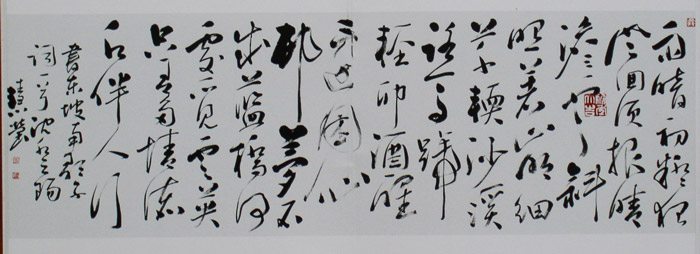 雨暗初疑夜
風回报晴
淡雲斜
照著山明細
草軟沙溪
路馬蹄
輕卯酒醒
還困仙
邨夢不
成藍橋何
處覓雲英
只有多情流
水伴人行
書東坡南歌子
词一首